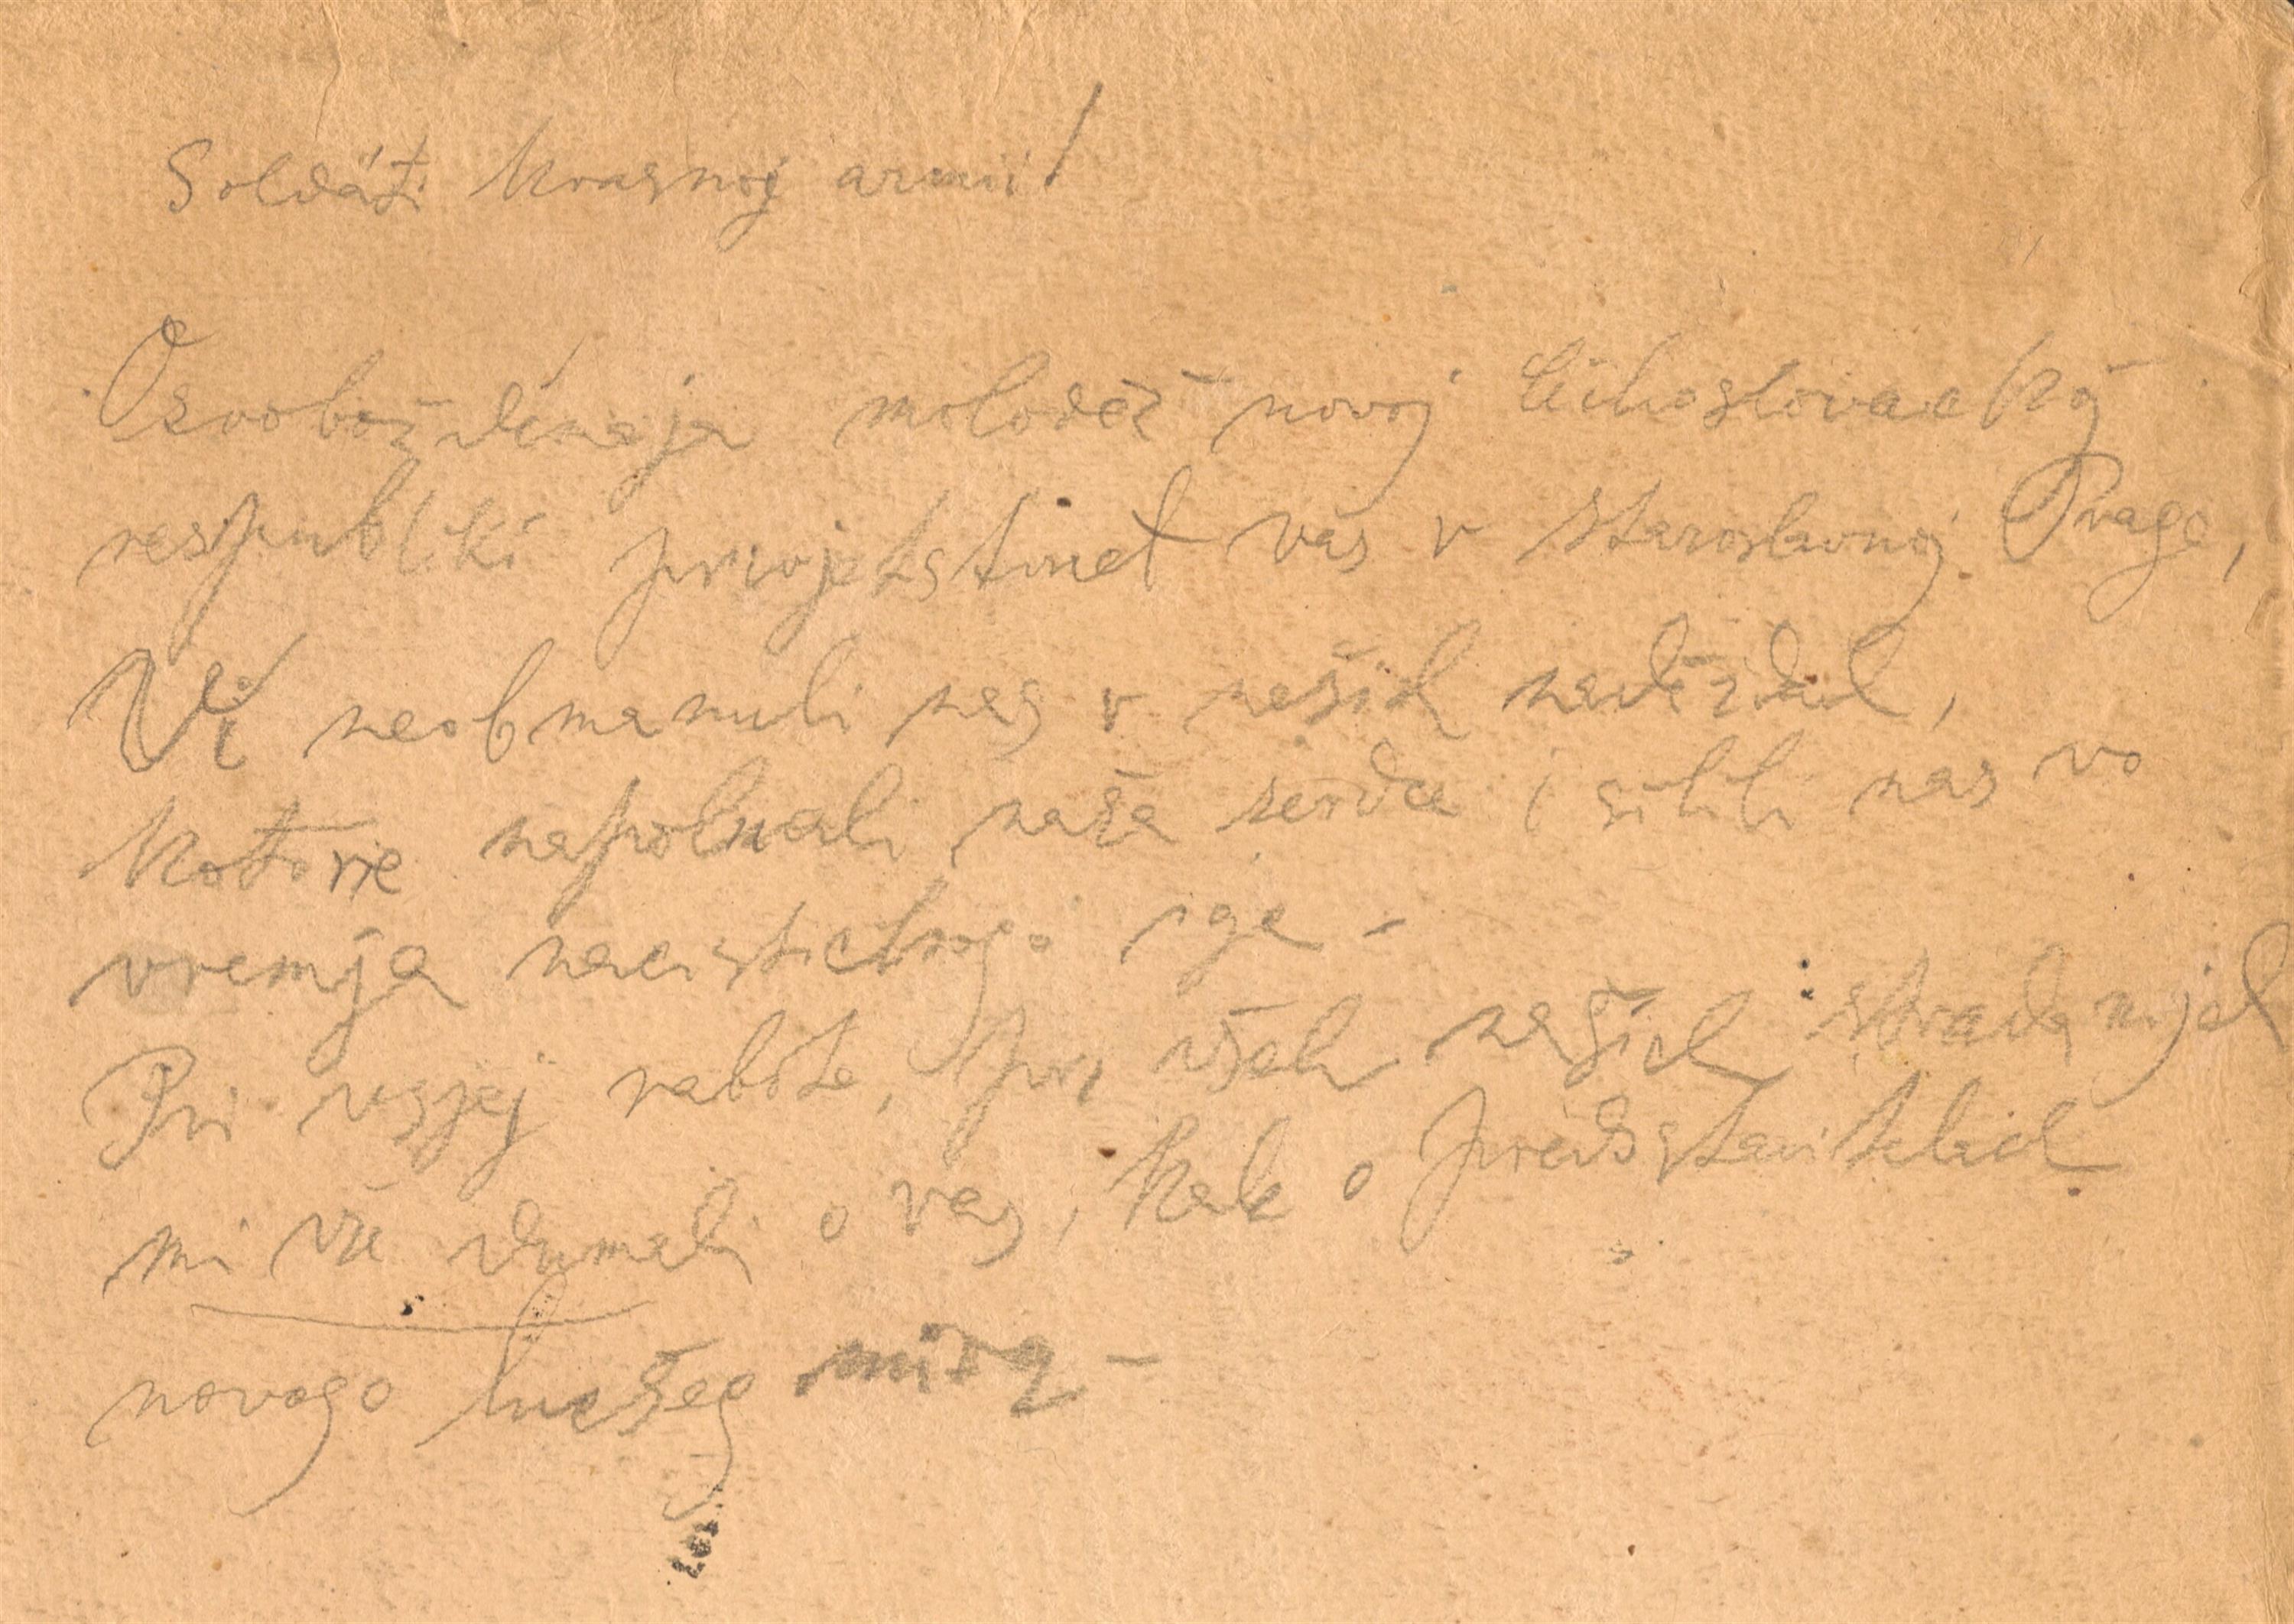 Soldáti krasnoj armii!
Osvobožďénaja moloděž novoj Čichoslovackoj
respubliki privjetstvuet vas v staroslavnoj Prage,
Vi neobmanuli nas v našich naděždach,
kotorie napolnali naša serdca i silili nas vo
vremja nacističeskogo iga –
Pri vsjej rabote, pri všech našich stradanijach
mi vse dumali o vas, kak o predstavitelach
novago lučšego mira –